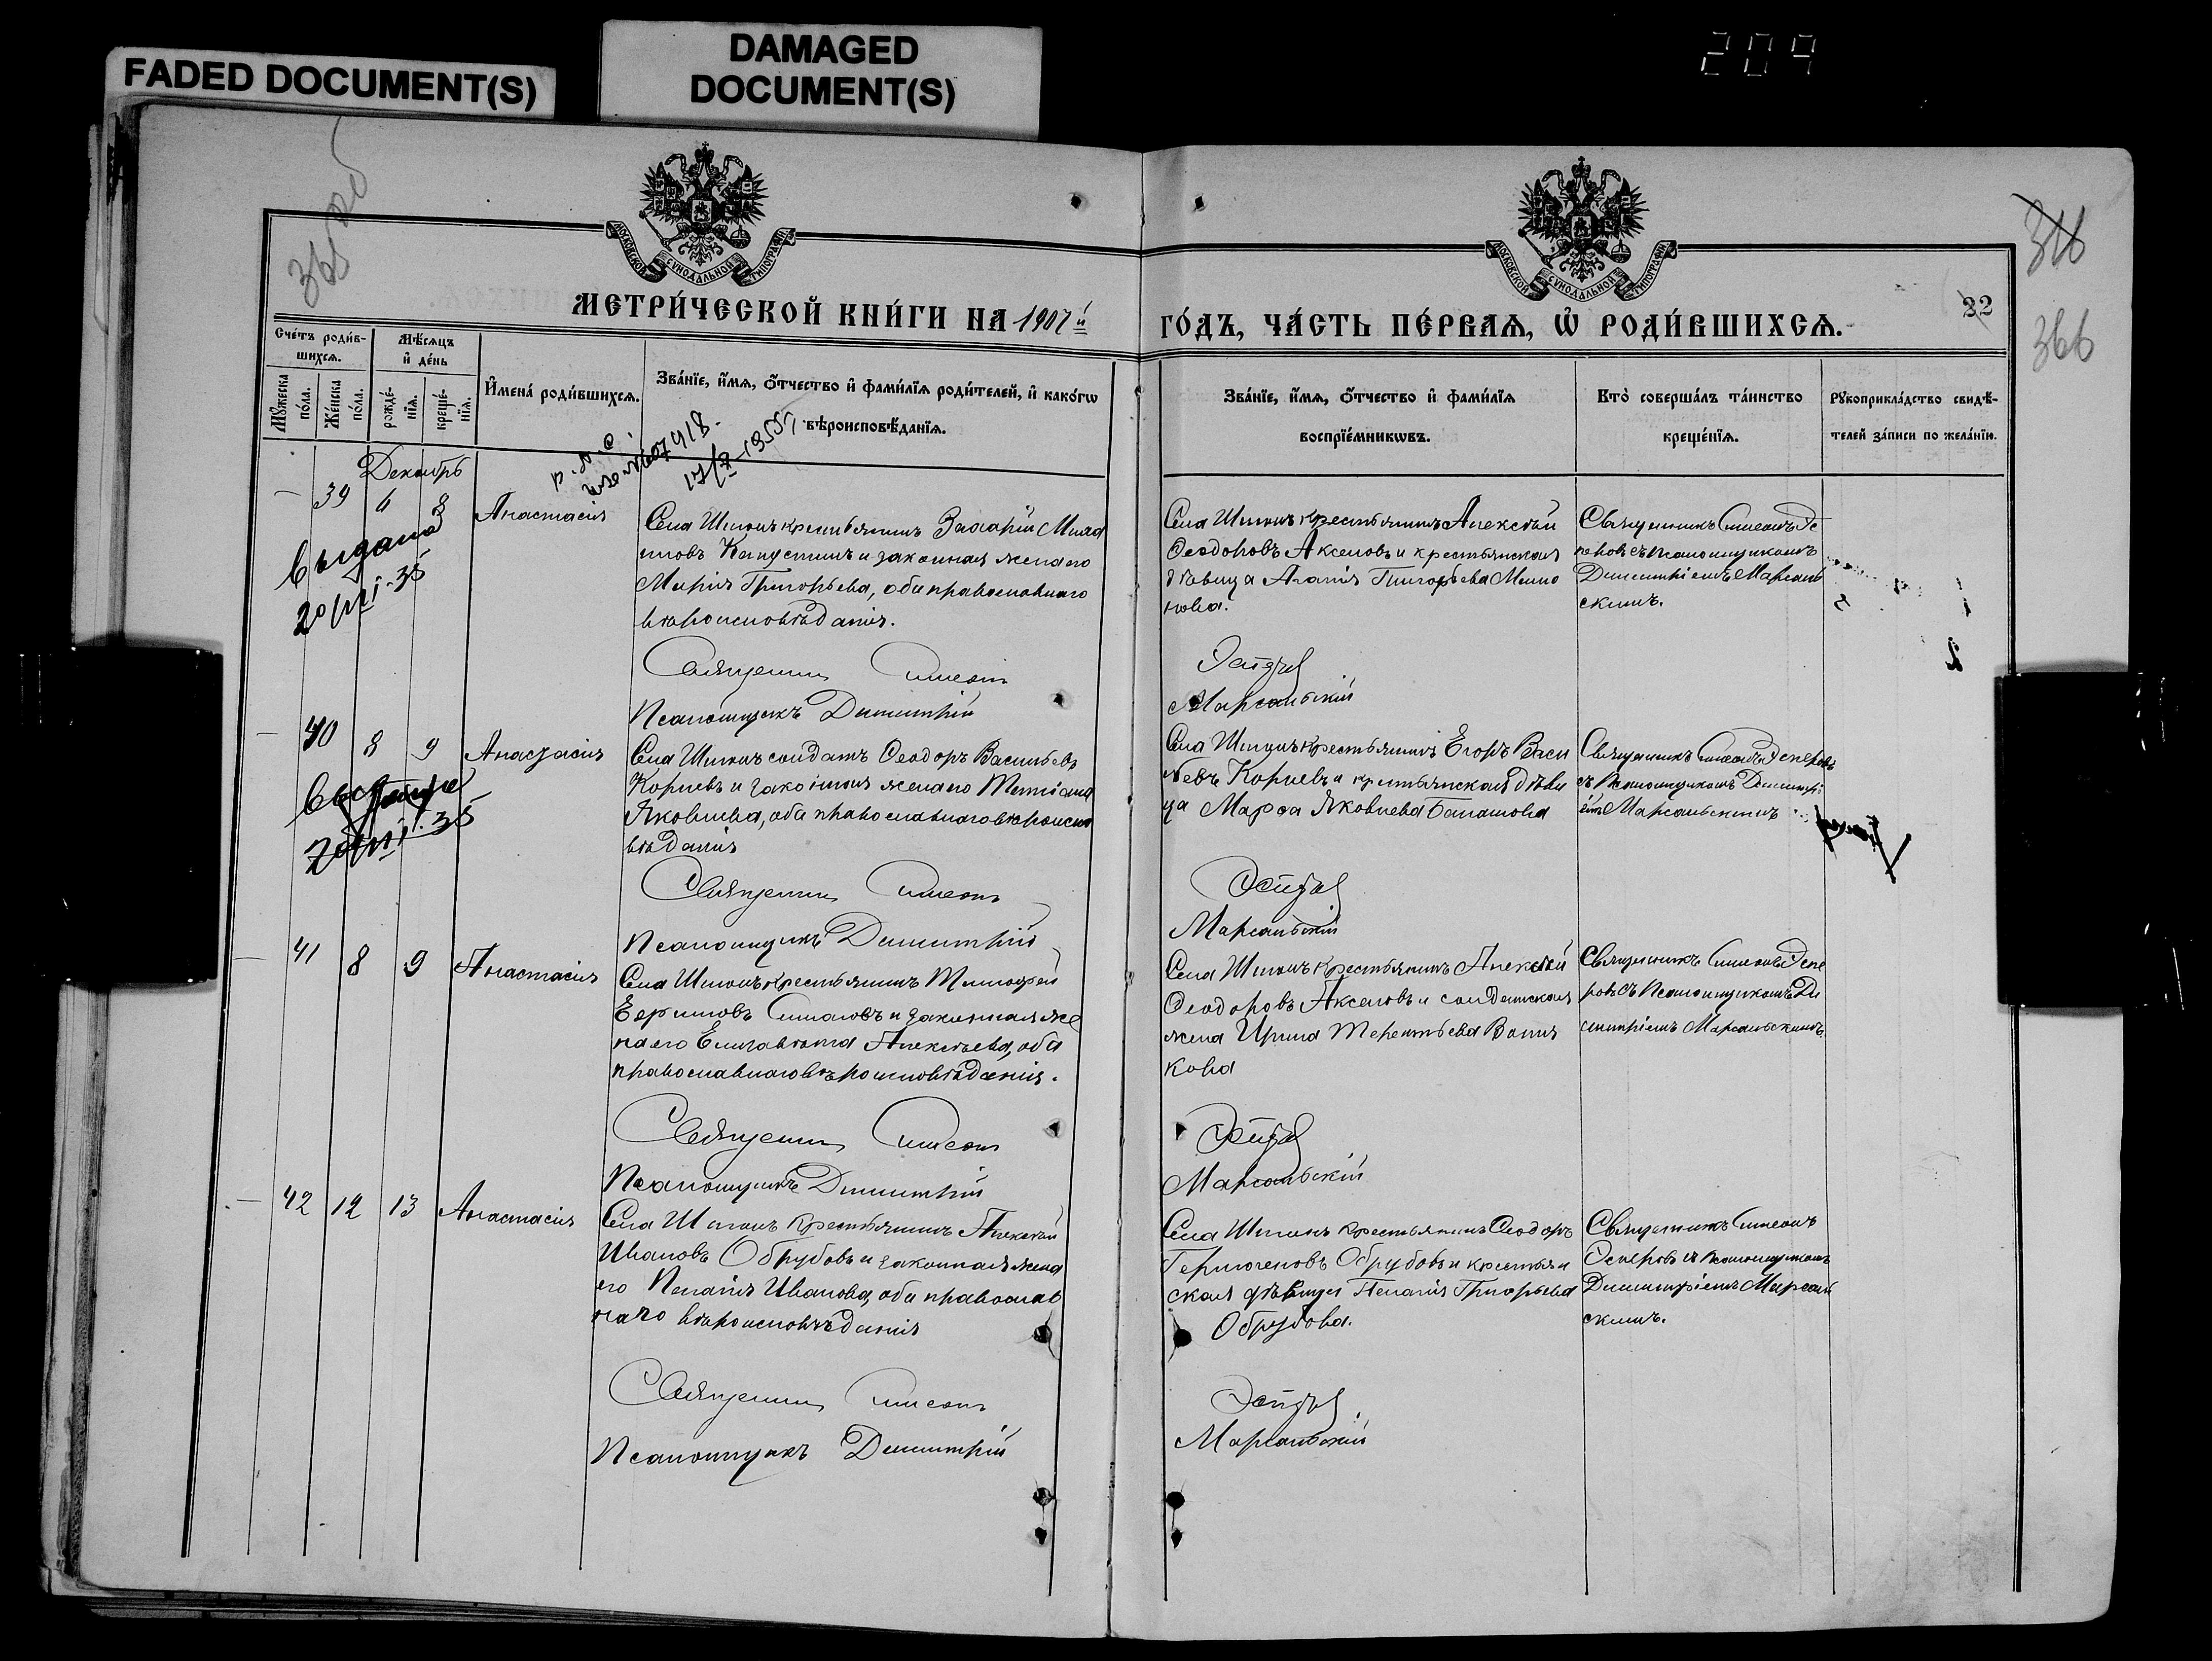 FADED DOCUMENT(S)
DAMAGED
DOCUMENT(S)
209
365
316
366
22
МОСКОВСКОЙ СѴНОДАЛЬНОЙ ТИПОГРАФІИ
МОСКОВСКОЙ СѴНОДАЛЬНОЙ ТИПОГРАФІИ
МЕТРИ́ЧЕСКОЙ КНИ́ГИ НА 1907й
ГО́ДЪ, ЧА́СТЬ ПЕ́РВАѦ, Ѽ РОДИ́ВШИХСѦ.
Счетъ роди́в-
шихсѧ.
Мѣсѧцъ
и҆ де́нь
Мꙋ́жеска
по́ла.
Же́нска
по́ла.
рожде́-
нїѧ.
креще́-
нїѧ.
И҆мена̀ роди́вшихсѧ.
Зва́нїе, и҆́мѧ, ѻ҆́тчество и҆ фами́лїѧ роди́телей, и҆ како́гѡ
вѣроисповѣ́данїѧ.
Зва́нїе, и҆́мѧ, ѻ҆́тчество и҆ фами́лїѧ
воспрїе́мникѡвъ.
Кто̀ соверша́лъ та́инство
креще́нїѧ.
Рꙋкоприкла́дство свидѣ́-
телей за́писи по жела́нїю.
Декабрь
39 6 8 Анастасія
выдана
20/VII-35
Села Шитомъ крестьянинъ Захарій
Капустинъ и законная жена его
Марія Григорьева, оба православнаго
вѣроисповѣданія.
Священникъ Симеонъ
Псаломщикъ Димитрій
Села крестьянинъ Алексѣй
Ѳеодоровъ Аксеновъ и крестьянская
дѣвица Агапія Григорьева
нова.
Марсальскій
Священникъ Симеонъ
съ псаломщикомъ
Димитріемъ Марсаль
скимъ.
40 8 9 Анастасія
Села солдатъ Ѳеодоръ Васильевъ
Корневъ и законная жена его Татіана
Яковлева, оба православнаго вѣроиспо
вѣданія
Священникъ Симеонъ
Псаломщикъ Димитрій
Села крестьянинъ Егоръ Васи
льевъ Корневъ и крестьянская дѣви
ца Марѳа Яковлева Балашова
Марсальскій
Священникъ Симеонъ
съ псаломщикомъ Димитрі
емъ Марсальскимъ
41 8 9 Анастасія
Села крестьянинъ Тимоѳей
и законная же
на его Елизавета Алексѣева, оба
православнаго вѣроисповѣданія.
Священникъ Симеонъ
Псаломщикъ Димитрій
Села крестьянинъ Алексѣй
Ѳеодоровъ Аксеновъ и солдатская
жена Ирина Терентьева
кова
Марсальскій
Священникъ Симеонъ
ровъ съ псаломщикомъ Ди
митріемъ Марсальскимъ.
42 12 13 Анастасія
Села крестьянинъ Алексѣй
Ивановъ Обрубовъ и законная жена
его Пелагія Иванова, оба православ
наго вѣроисповѣданія
Священникъ Симеонъ
Псаломщикъ Димитрій
Села крестьянинъ Ѳеодоръ
Гермогеновъ Обрубовъ и крестьян
ская дѣвица Пелагія Григорьева
Обрубова.
Марсальскій
Священникъ Симеонъ
съ псаломщикомъ
Димитріемъ Марсаль
скимъ.